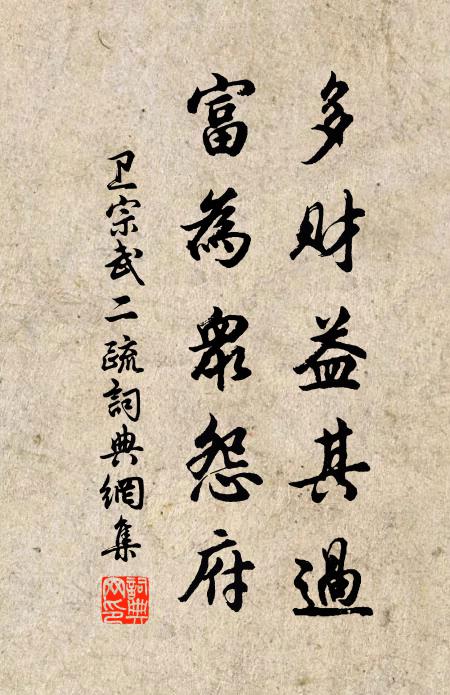 多财益其過
富為眾怨府
卫宗武二疏詞典網集
詞典
网印